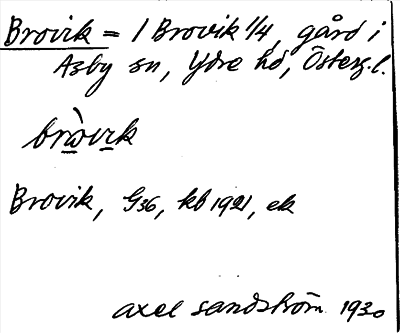 Brovik = 1 Brovik 1/4, gård i
Asby sn, Ydre hd, Österg. l.
bròvik
Brovik, G36, kb 1921, ek
axel sandström 1930